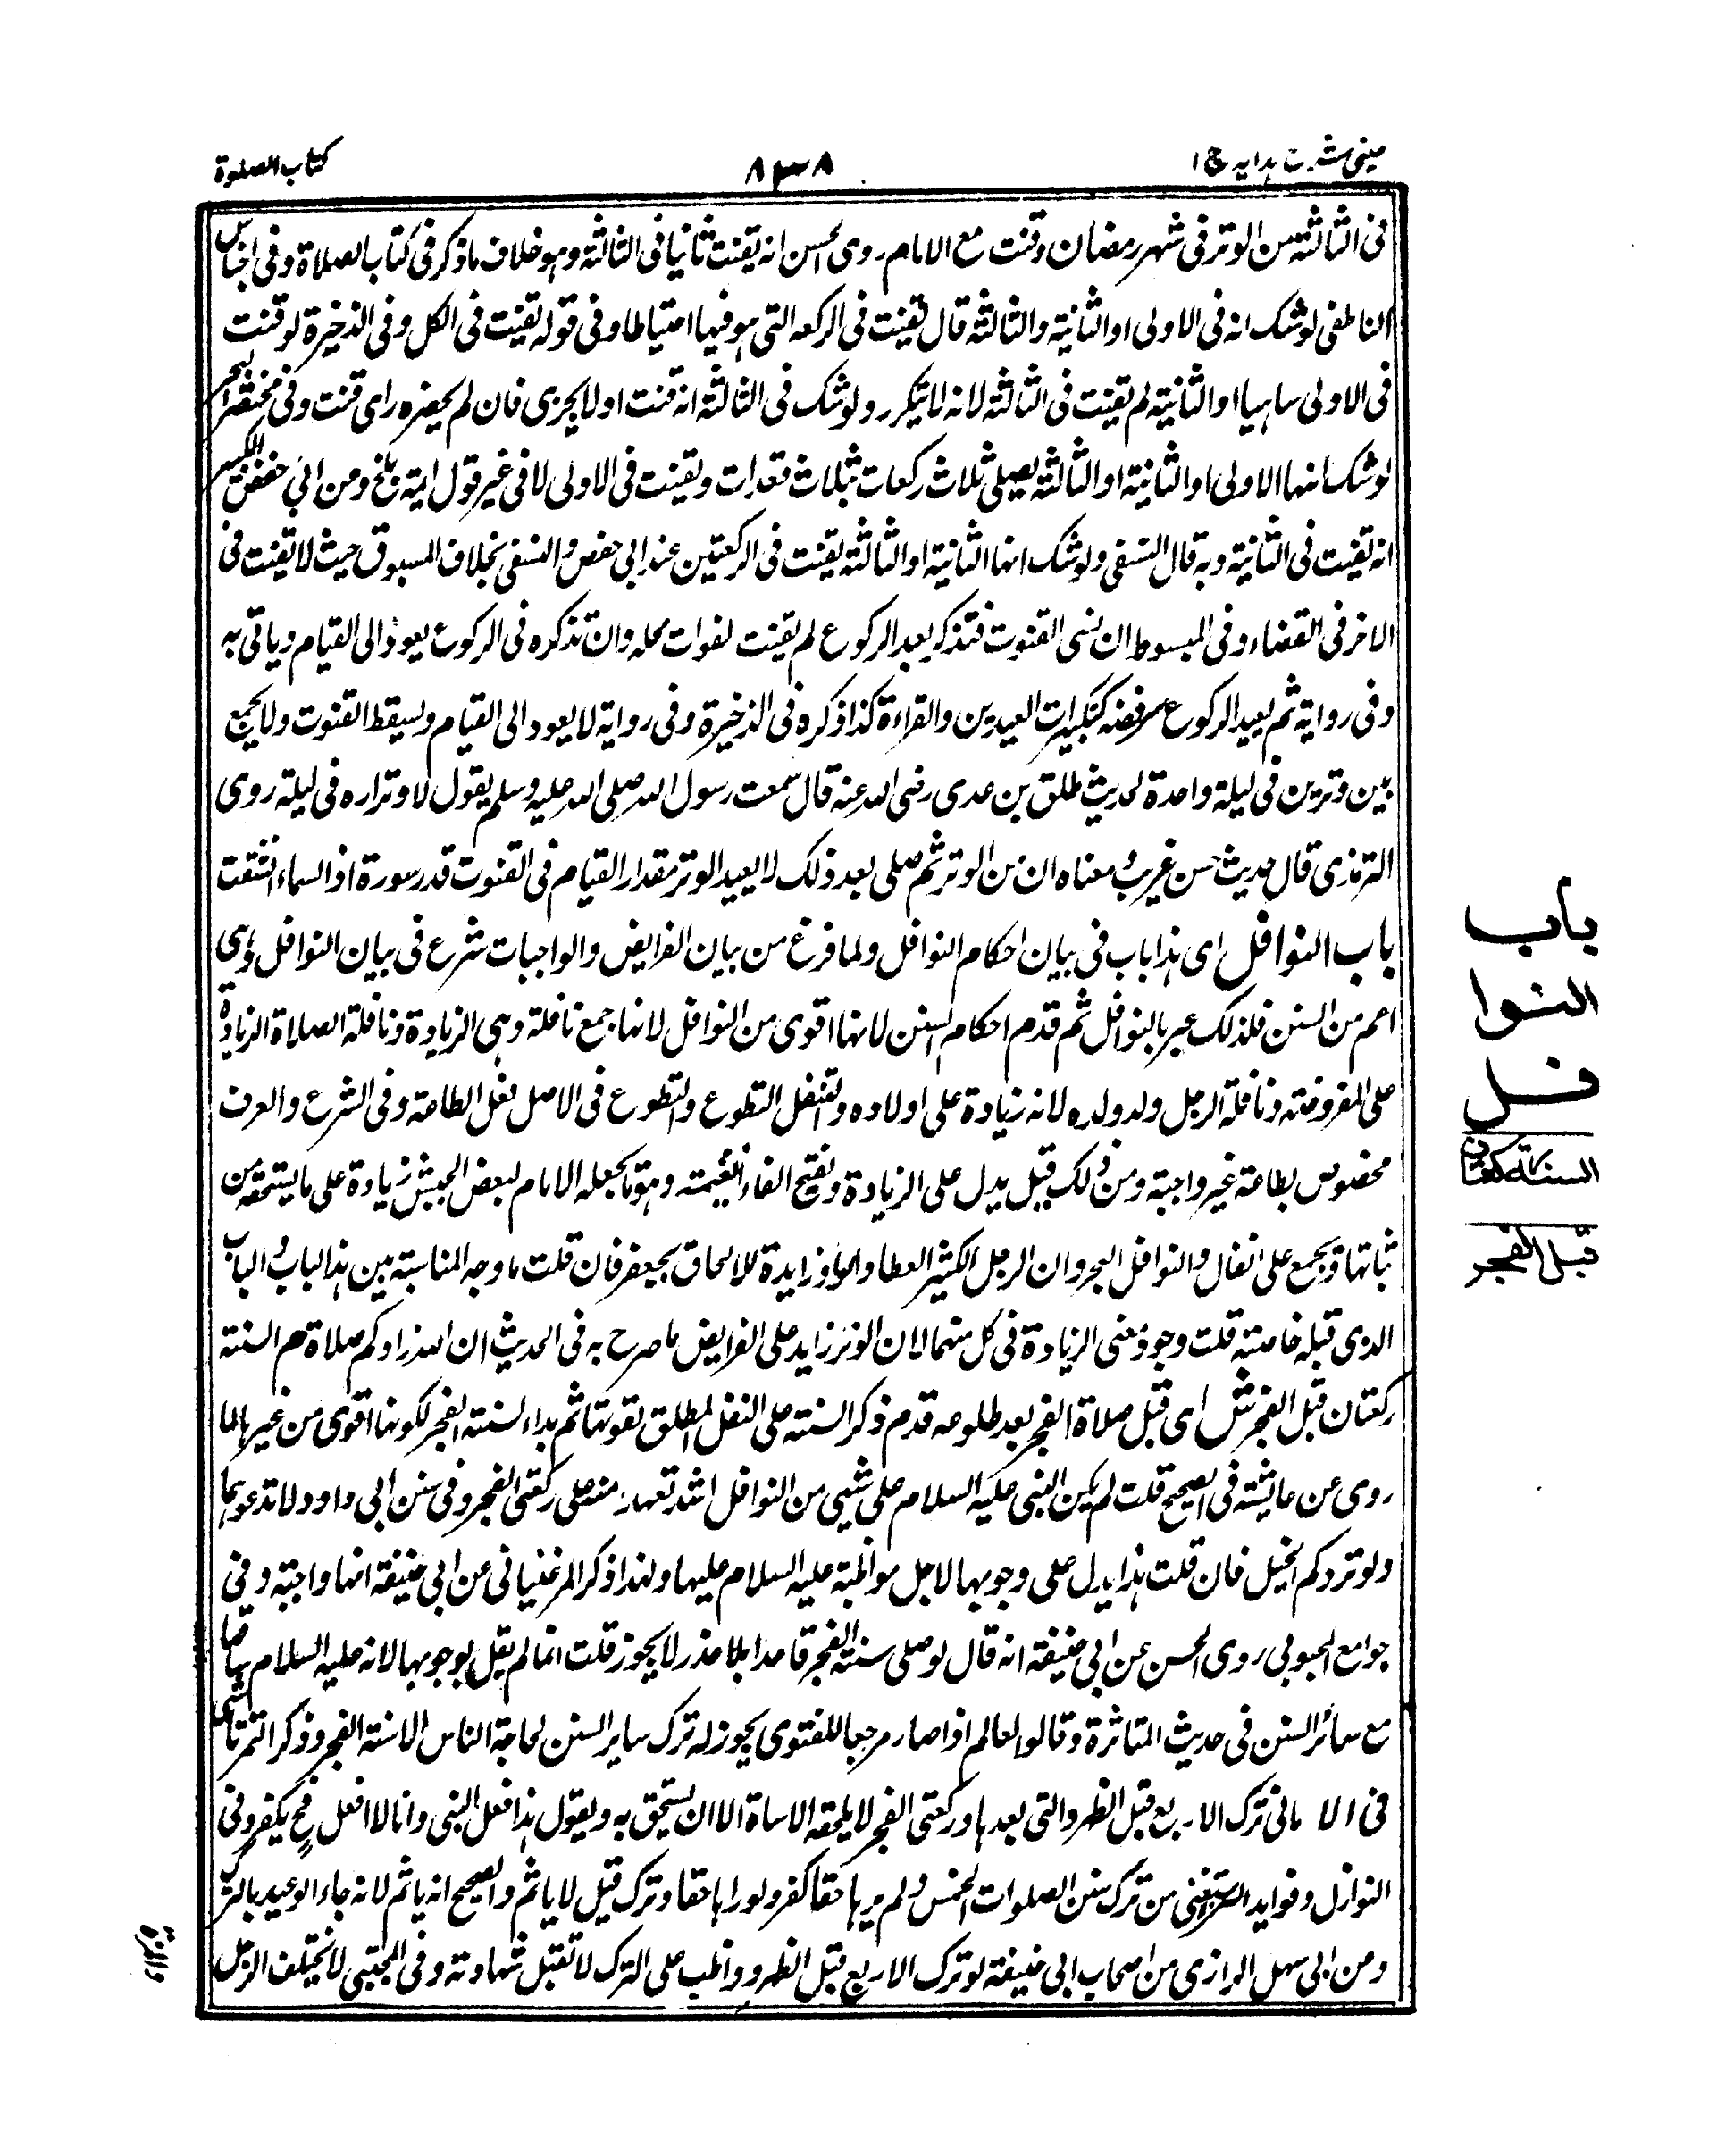 عینی شرح ہدایہ ج ۱
۸۳۸
کتاب الصلوة
فی الثالثة من الوتر فی شهر رمضان وقنت مع الامام روی الحسن انه یقنت ثانیا فی الثالثة وهو خلاف ما ذکر فی کتاب الصلاة وفی اجناس
الناطفی لو شک انه فی الاولی او الثانیة والثالثة قال یقنت فی الرکعه التی هو فیها احتیاطا وفی قوله یقنت فی الکل وفی الذخیرة لو قنت
فی الاولی ساهیا او الثانیة لم یقنت فی الثالثة لانه لا یتکرر ولو شک فی الثالثة انه قنت او لا یجزی فان لم یحضره رای قنت وفی مختصر البحر
لو شک انها الاولی او الثانیة او الثالثة یصلی ثلاث رکعات بثلاث قعدات ویقنت فی الاولی لا فی غیر قول ایمة بلخ ومن ابی حفص الکبیر
انه یقنت فی الثانیة وبه قال النسفی ولو شک انها الثانیة او الثالثة یقنت فی الرکعتین عند ابی حفص والنسفی بخلاف المسبوق حیث لا یقنت فی
الاخر فی القضاء وفی المبسوط ان نسی القنوت فتذکر بعد الرکوع لم یقنت لفوات محله وان تذکره فی الرکوع یعود الی القیام ویاتی به
وفی روایة ثم یعید الرکوع عم رفضه کتکبیرات العیدین والقراءة کذا ذکره فی الذخیرة وفی روایة لا یعود الی القیام ویسقط القنوت ولا یجمع
بین وترین فی لیلة واحدة لحدیث طلق بن عدی رضی الله عنه قال سمعت رسول الله صلی الله علیه وسلم یقول لا وتراره فی لیلة روی
الترمذی قال حدیث حسن غریب ومعناه ان من الوتر ثم صلی بعد ذلک لا یعید الوتر مقدار القیام فی القنوت قدر سورة اذا السماء انشقت
باب النوافل ای هذا باب فی بیان احکام النوافل ولما فرغ من بیان الفرایض والواجبات شرع فی بیان النوافل وهی
اعم من السنن فلذلک عبر بالنوافل ثم قدم احکام السنن لانها اقوی من النوافل لانها جمع نافلة وهی الزیادة ونافلة الصلاة الزیادة
علی المفروضة ونافلة الرجل ولد ولده لانه زیادة علی اولاده والتنفل التطوع والتطوع فی الاصل فعل الطاعة وفی الشرع والعرف
مخصوص بطاعة غیر واجبة ومن ذلک قیل یدل علی الزیادة وبفتح الفاء الغنیمة وهو ما یجعله الامام لبعض الجیش زیادة علی ما یستحقه من
ثباتها ویجمع علی انفال والنوافل البحر وان الرجل الکثیر العطا والواو زایدة للالحاق بجعفر فان قلت ما وجه المناسبة بین هذا الباب والباب
الذی قبله خاصة قلت وجود معنی الزیادة فی کل منهما لان الوتر زاید علی الفرایض ما صرح به فی الحدیث ان الله زادکم صلاة هم السنة
رکعتان قبل الفجر ش ای قبل صلاة الفجر بعد طلوعه قدم ذکر السنة علی النفل المطلق لقوتها ثم بداء لسنة الفجر لکونها اقوی من غیرها لما
روی عن عایشة فی الصحیح قلت لم یکن النبی علیه السلام علی شیی من النوافل اشد تعهدا منه علی رکعتی الفجر وفی سنن ابی داود لا تدعوهما
ولو تردکم الخیل فان قلت هذا یدل علی وجوبها لاجل مواظبة علیه السلام علیها ولهذا ذکر المرغینانی عن ابی حنیفة انها واجبة وفی
جوامع المحبوبی روی الحسن عن ابی حنیفة انه قال لو صلی سنة الفجر قاعدا بلا عذر لا یجوز قلت انما لم یقل بوجوبها لانه علیه السلام ساقها
مع سائر السنن فی حدیث المثابرة وقالوا العالم اذا صار مرجعا للفتوی یجوز له ترک سایر السنن لحاجة الناس الا سنة الفجر وذکر التمرتاشی
فی الا مانی ترک الاربع قبل الظهر والتی بعدها ورکعتی الفجر لا یلحقه الاساة الا ان یستحق به ویقول هذا فعل النبی وانا لا افعل فح یکفر وفی
النوازل وفواید الرستغنی من ترک سنن الصلوات الخمس ولم یرها حقا کفر ولو راها حقا وترک قیل لا یاثم والصحیح انه یاثم لانه جاء الوعید بالترک
ومن ابی سهل الرازی من اصحاب ابی حنیفة لو ترک الاربع قبل الظهر وواظب علی الترک لا تقبل شهادته وفی المجتبی لا تختلف الرجل
باب
النوا
فل
السنة رکعتان
قبل الفجر